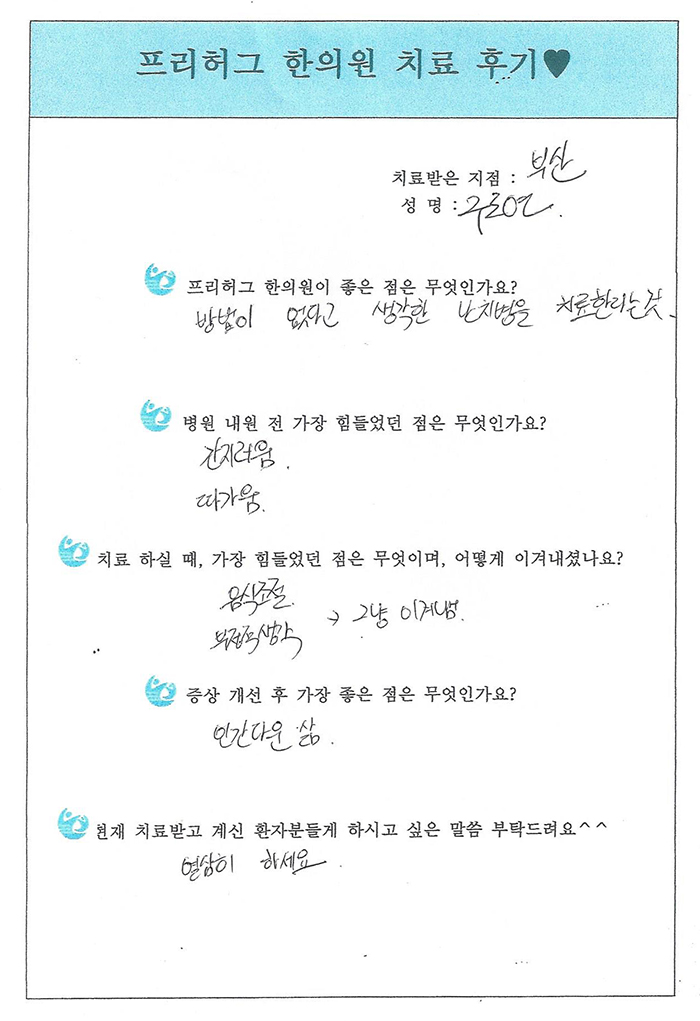 프리허그 한의원 치료 후기♥
치료받은 지점 : 부산
성 명 :
프리허그 한의원이 좋은 점은 무엇인가요?
방법이 없다고 생각한 난치병을 치료한다는것.
병원 내원 전 가장 힘들었던 점은 무엇인가요?
간지러움.
따가움.
치료 하실 때, 가장 힘들었던 점은 무엇이며, 어떻게 이겨내셨나요?
음식조절
부정적생각 → 그냥 이겨냄.
증상 개선 후 가장 좋은 점은 무엇인가요?
인간다운 삶.
현재 치료받고 계신 환자분들게 하시고 싶은 말씀 부탁드려요^^
열심히 하세요.